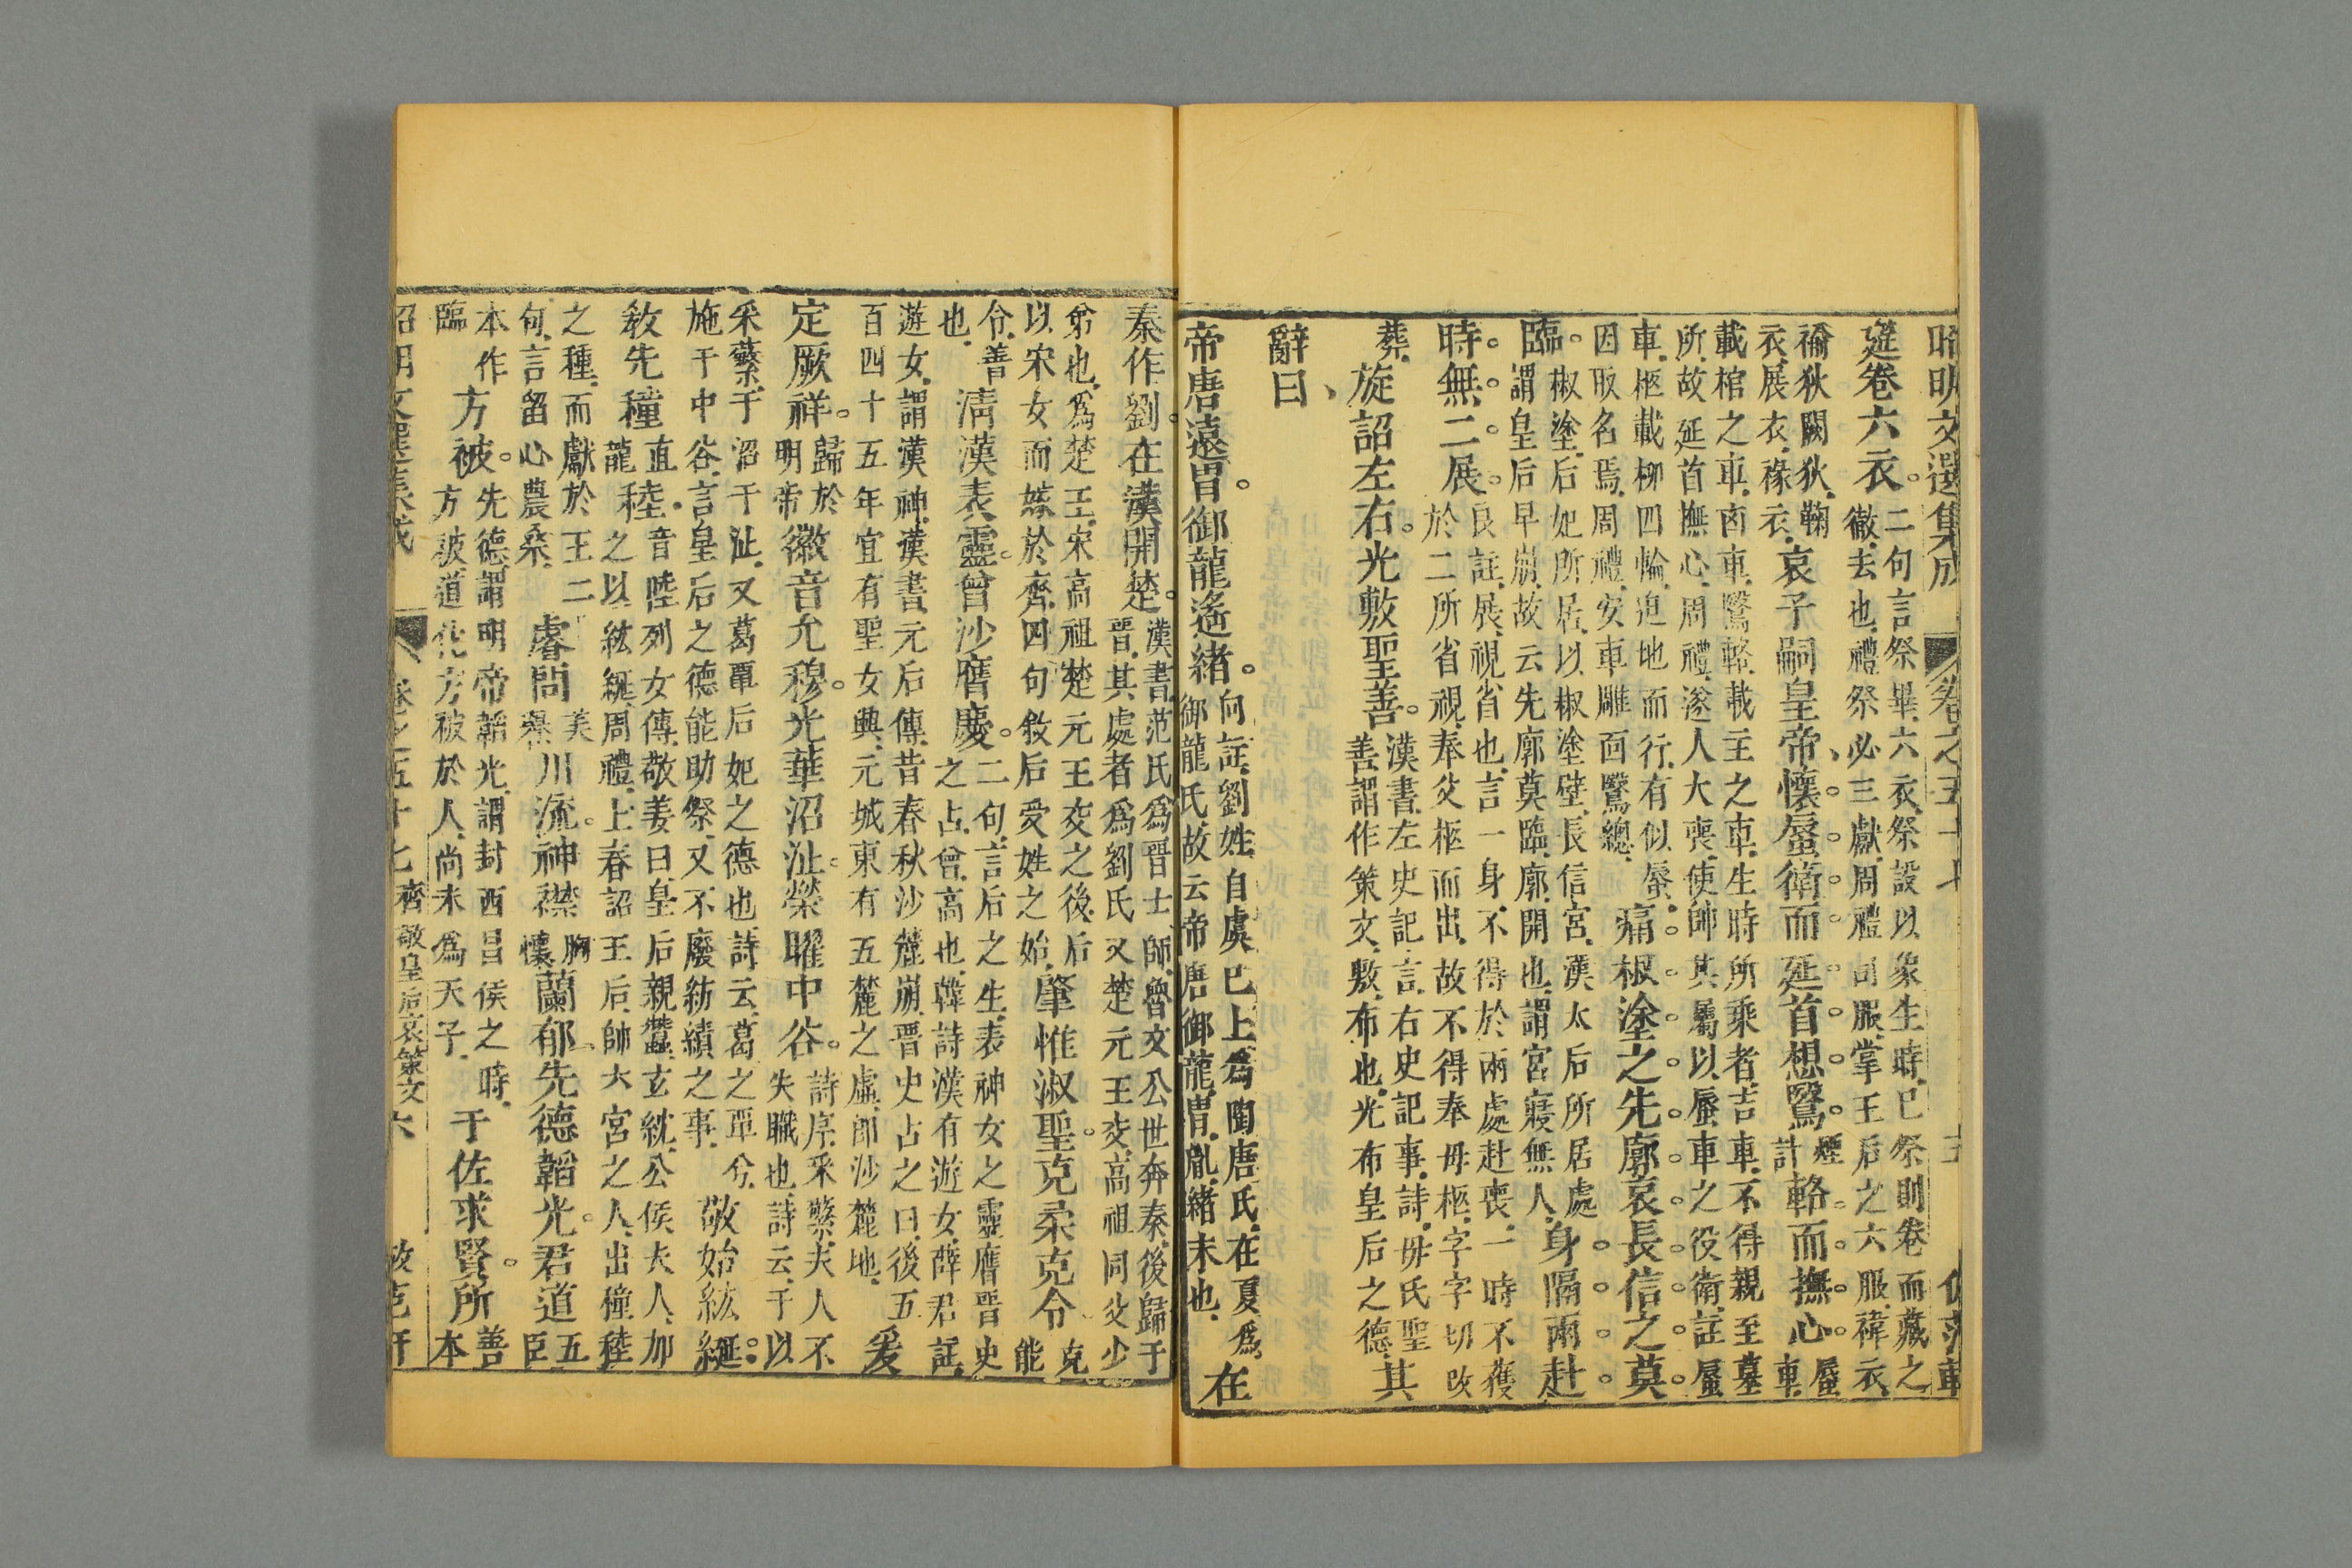 昭明文選集成 卷之五十七 五 倣范軒
筵卷六衣。
二句言祭畢六衣祭設以象生時已祭則卷而藏之
徹去也禮祭必三獻周禮司服掌王后之六服褘衣
褕狄闕狄鞠
衣展衣褖衣
哀子嗣皇帝、懷蜃衛而延首想鷖
煙
計
輅而撫心
蜃
車
載棺之車鹵車鷖輅載主之車生時所乘者吉車不得親至墓
所故延首撫心周禮遂人大喪使帥其屬以蜃車之役衛註蜃
車柩載柳四輪迫地而行有似蜃
因取名焉周禮安車雕面鷖總
痛椒塗之先廓哀長信之莫
臨。
椒塗后妃所居以椒塗壁長信宮漢太后所居處
謂皇后早崩故云先廓莫臨廓開也謂宮寢無人
身隔兩赴
時無二展。
良註展視省也言一身不得於兩處赴喪一時不獲
於二所省視奉父柩而出故不得奉毋柩字字切改
葬
旋詔左右。光敷聖善。
漢書左史記言右史記事詩毋氏聖
善謂作策文敷布也光布皇后之德
其
辭曰、
帝唐遠胄。御龍遙緒。
向註劉姓自虞已上爲陶唐氏在夏爲
御龍氏故云帝唐御龍胄胤緒末也
在
秦作劉。在漢開楚。
漢書范氏爲晉士師魯文公世奔秦後歸于
晉其處者爲劉氏又楚元王交高祖同父少
弟也爲楚王宋高祖楚元王交之後后
以宋女而嫁於齊四句敘后受姓之始
肇惟淑聖。克柔克令
克
能
令善
也
清漢表靈。曾沙膺慶。
二句言后之生表神女之靈膺晉史
之占曾高也韓詩漢有遊女薛君註
遊女謂漢神漢書元后傳昔春秋沙麓崩晉史占之曰後五
百四十五年宜有聖女興元城東有五麓之虛卽沙麓地
爰
定厥祥。
歸於
明帝
徽音允穆。光華沼沚。榮曜中谷。
詩序采蘩夫人不
失職也詩云于以
采蘩于沼于沚又葛覃后妃之德也詩云葛之覃兮
施于中谷言皇后之德能助祭又不廢紡績之事
敬始紘綖。
敎先穜
直
龍
稑。
音陸列女傳敬姜曰皇后親蠶玄紞公侯夫人加
之以紘綖周禮上春詔王后帥六宮之人出穜稑
之種而獻於王二
句言留心農桑
睿問
美
譽
川流。神襟
胸
懷
蘭郁。先德韜光。君道
五
臣
本作
臨
方被。
先德謂明帝韜光謂封西昌侯之時
方被道化方被於人尚未爲天子
于佐求賢。所
善
本
昭明文選集成 卷之五十七 齊敬皇后哀策文 六